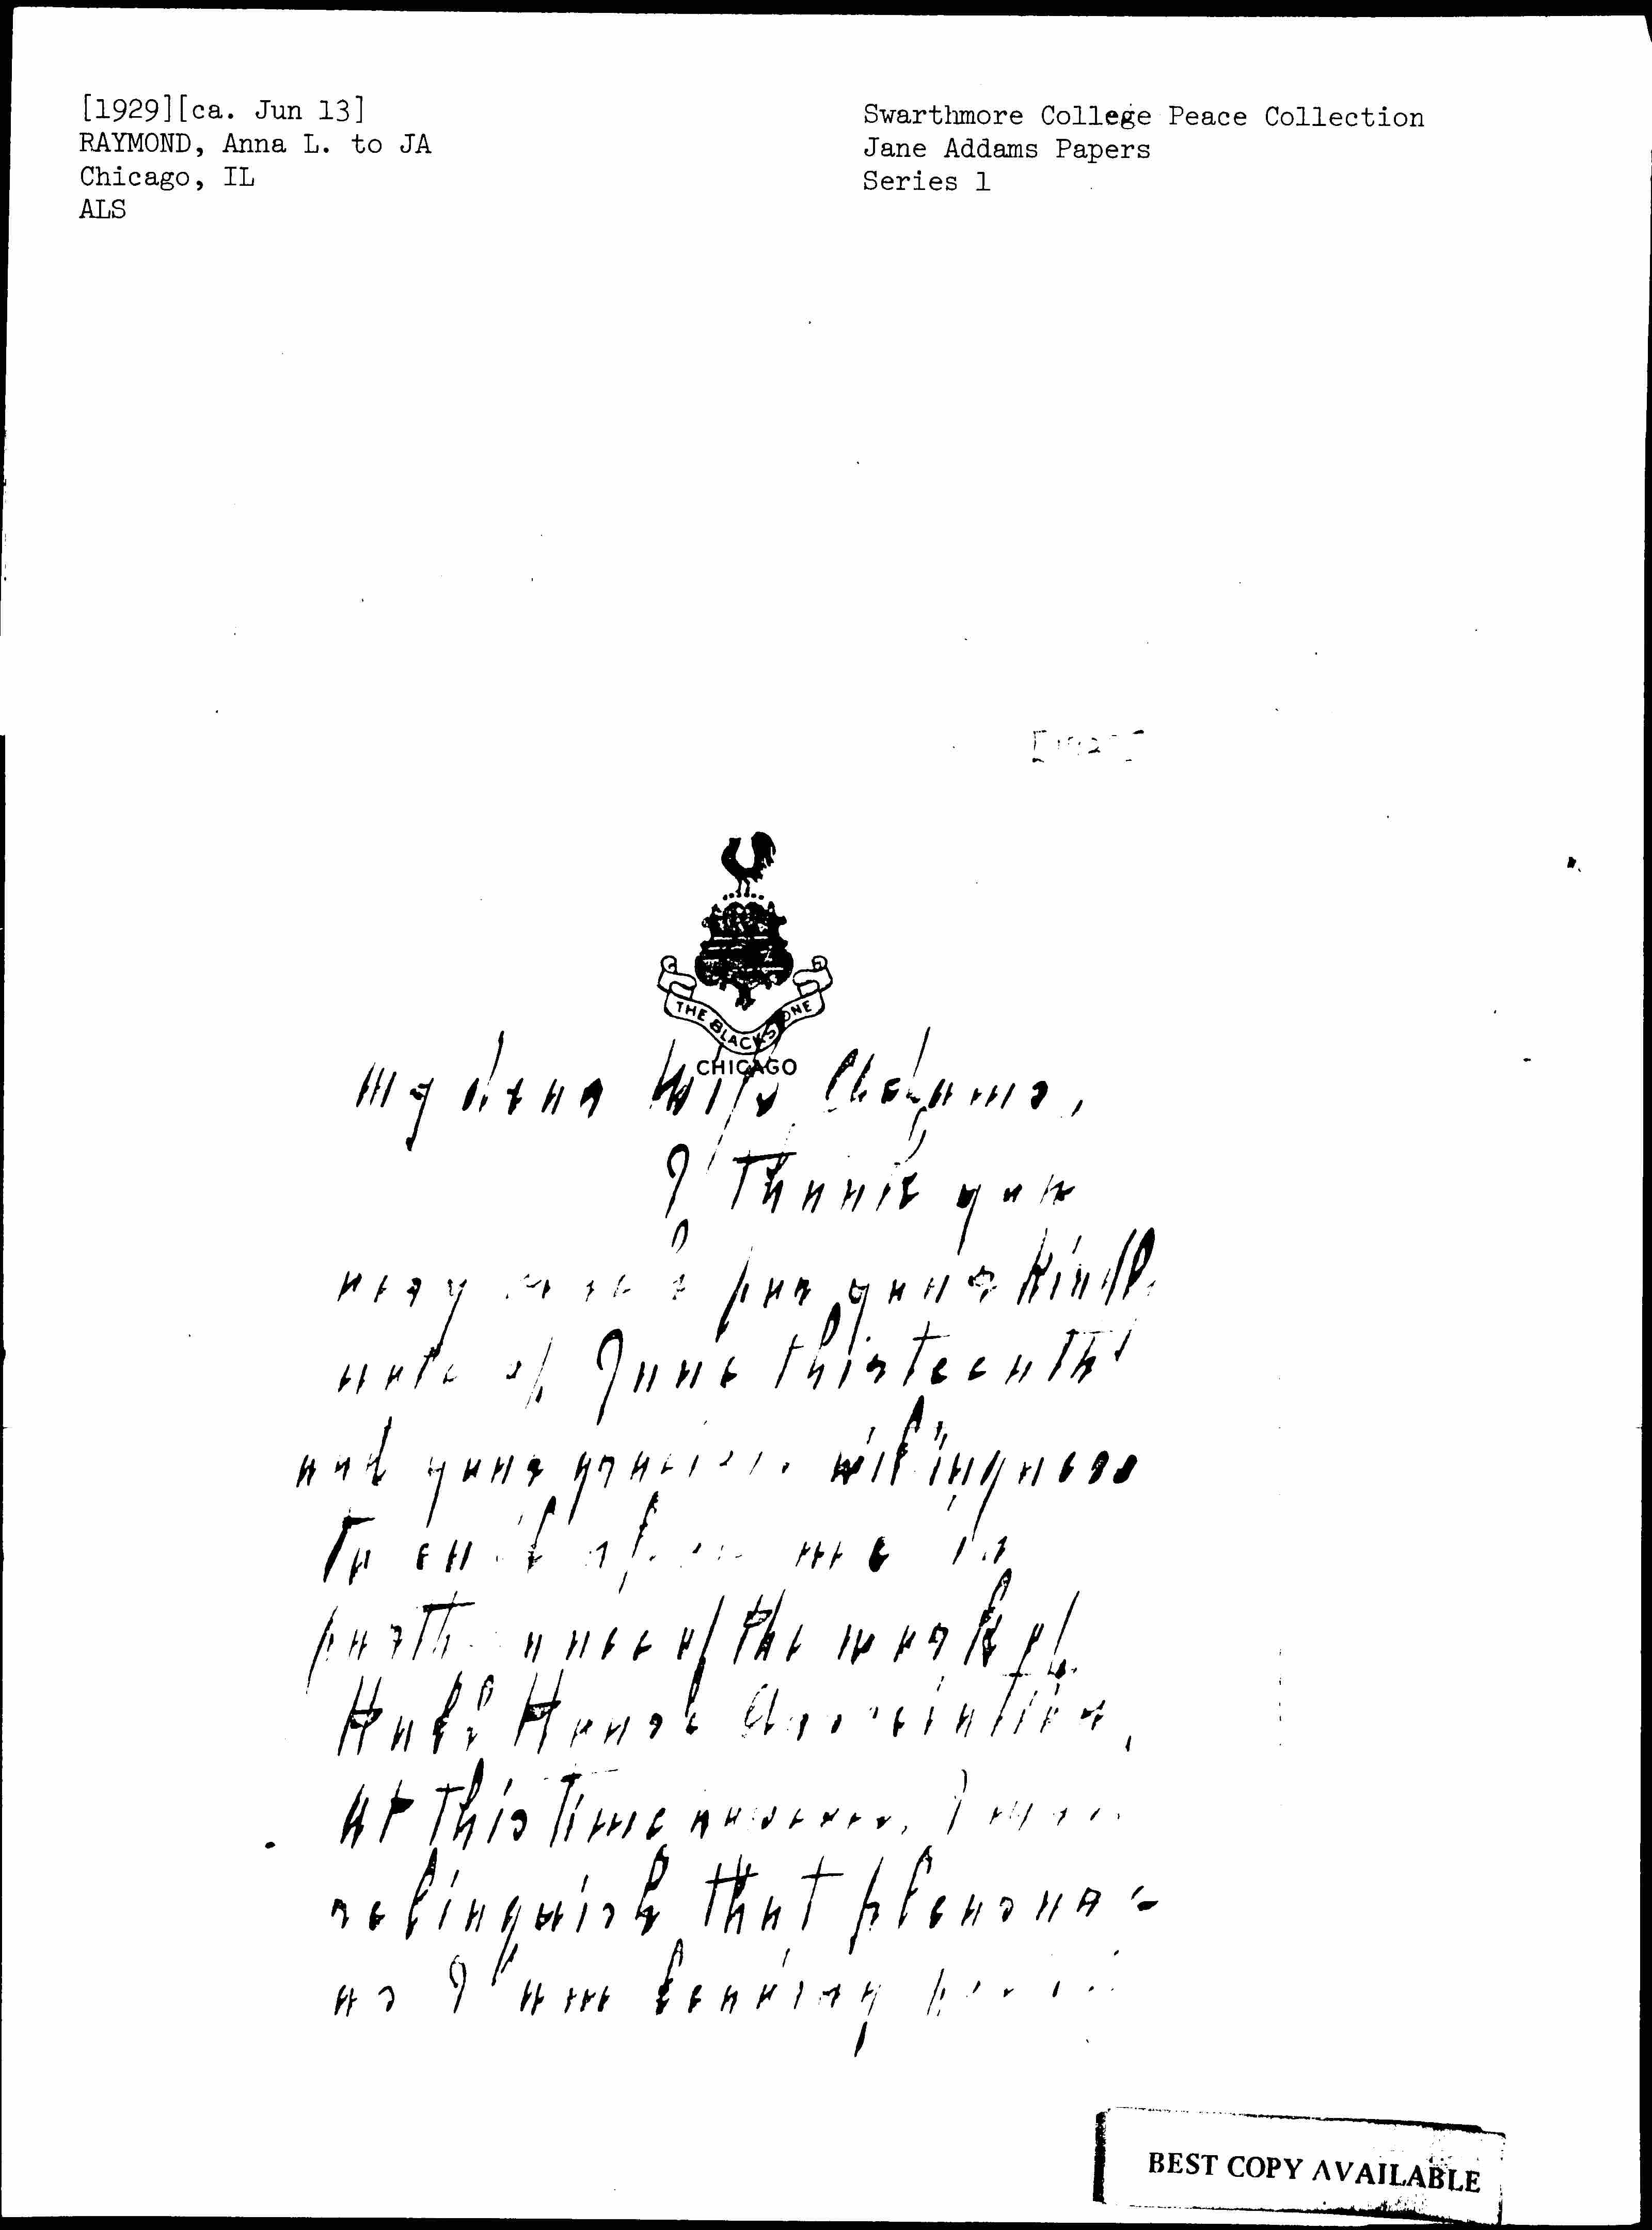 [1929][ca. Jun 13]
RAYMOND, Anna L. to JA
Chicago, IL
ALS
Swarthmore College Peace Collection
Jane Addams Papers
Series 1
THE BLACKSTONE
CHICAGO
My dear Miss Addams,
I thank you
very much for your kind
note of June thirteenth
and your gracious willingness
to me in
furtherance of the work of
Hull House Association,
at this time however, I
relinquish that pleasure
as I am leaving
BEST COPY AVAILABLE